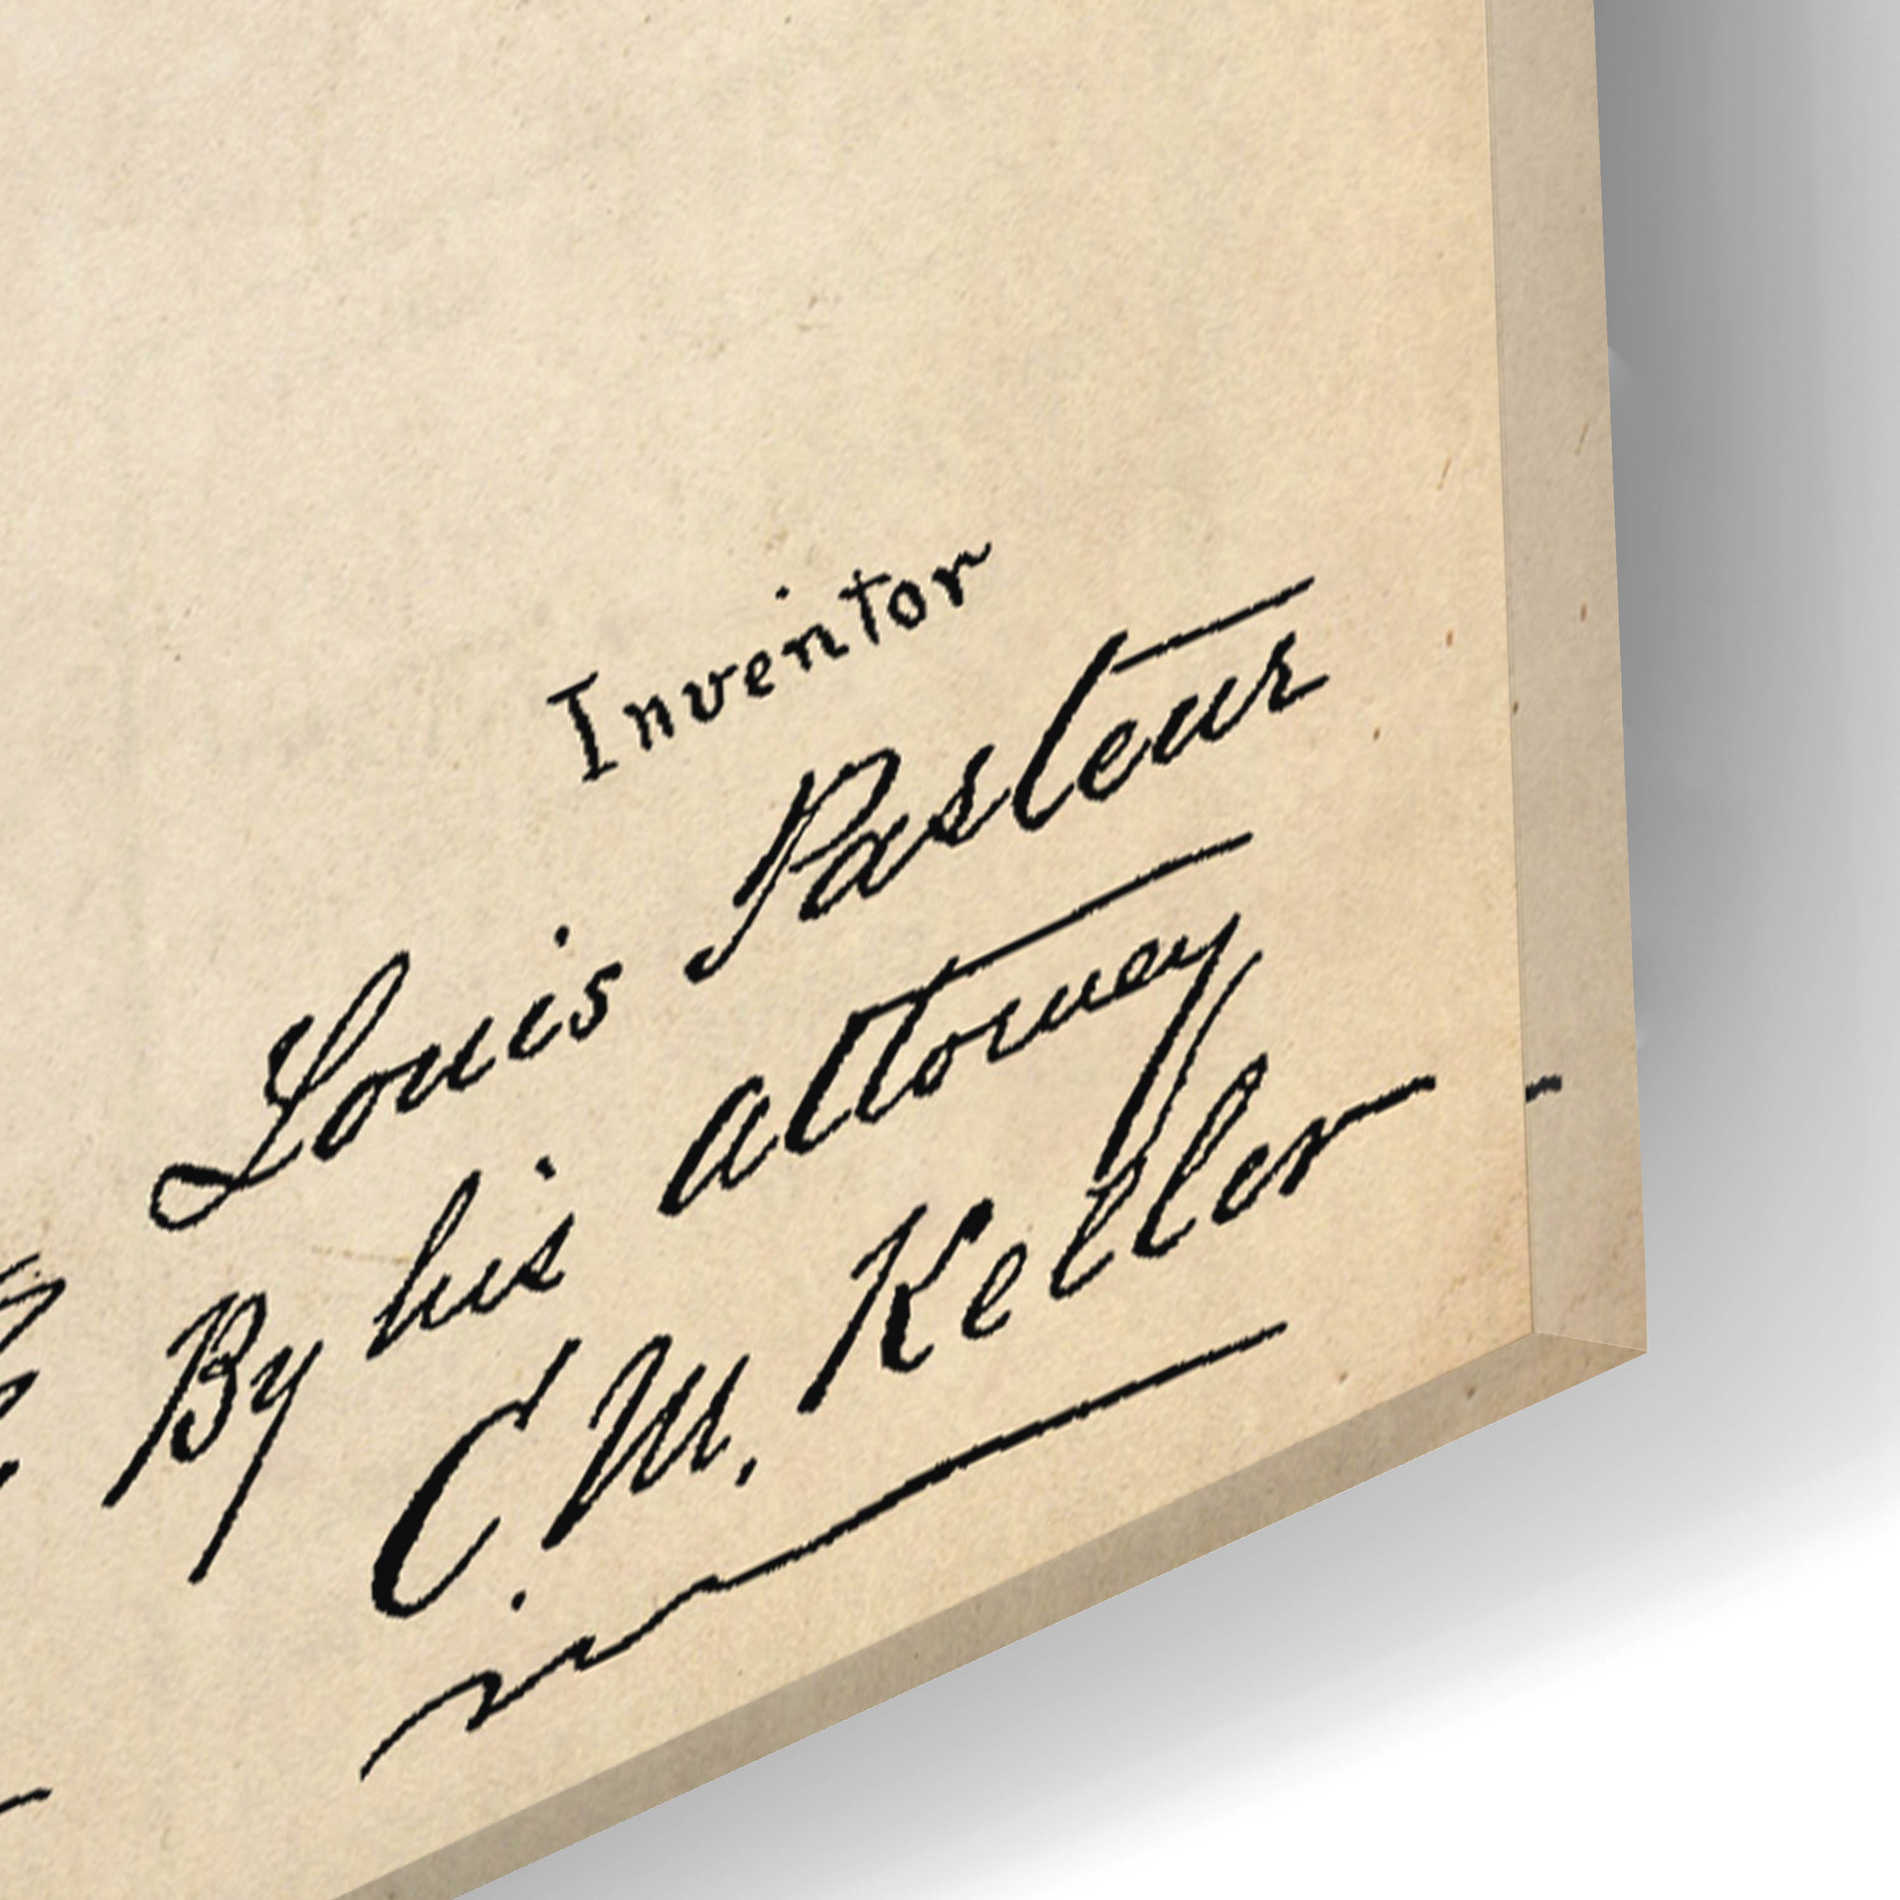 Inventor
Louis Pasteur
By his attorney
C. M. Keller